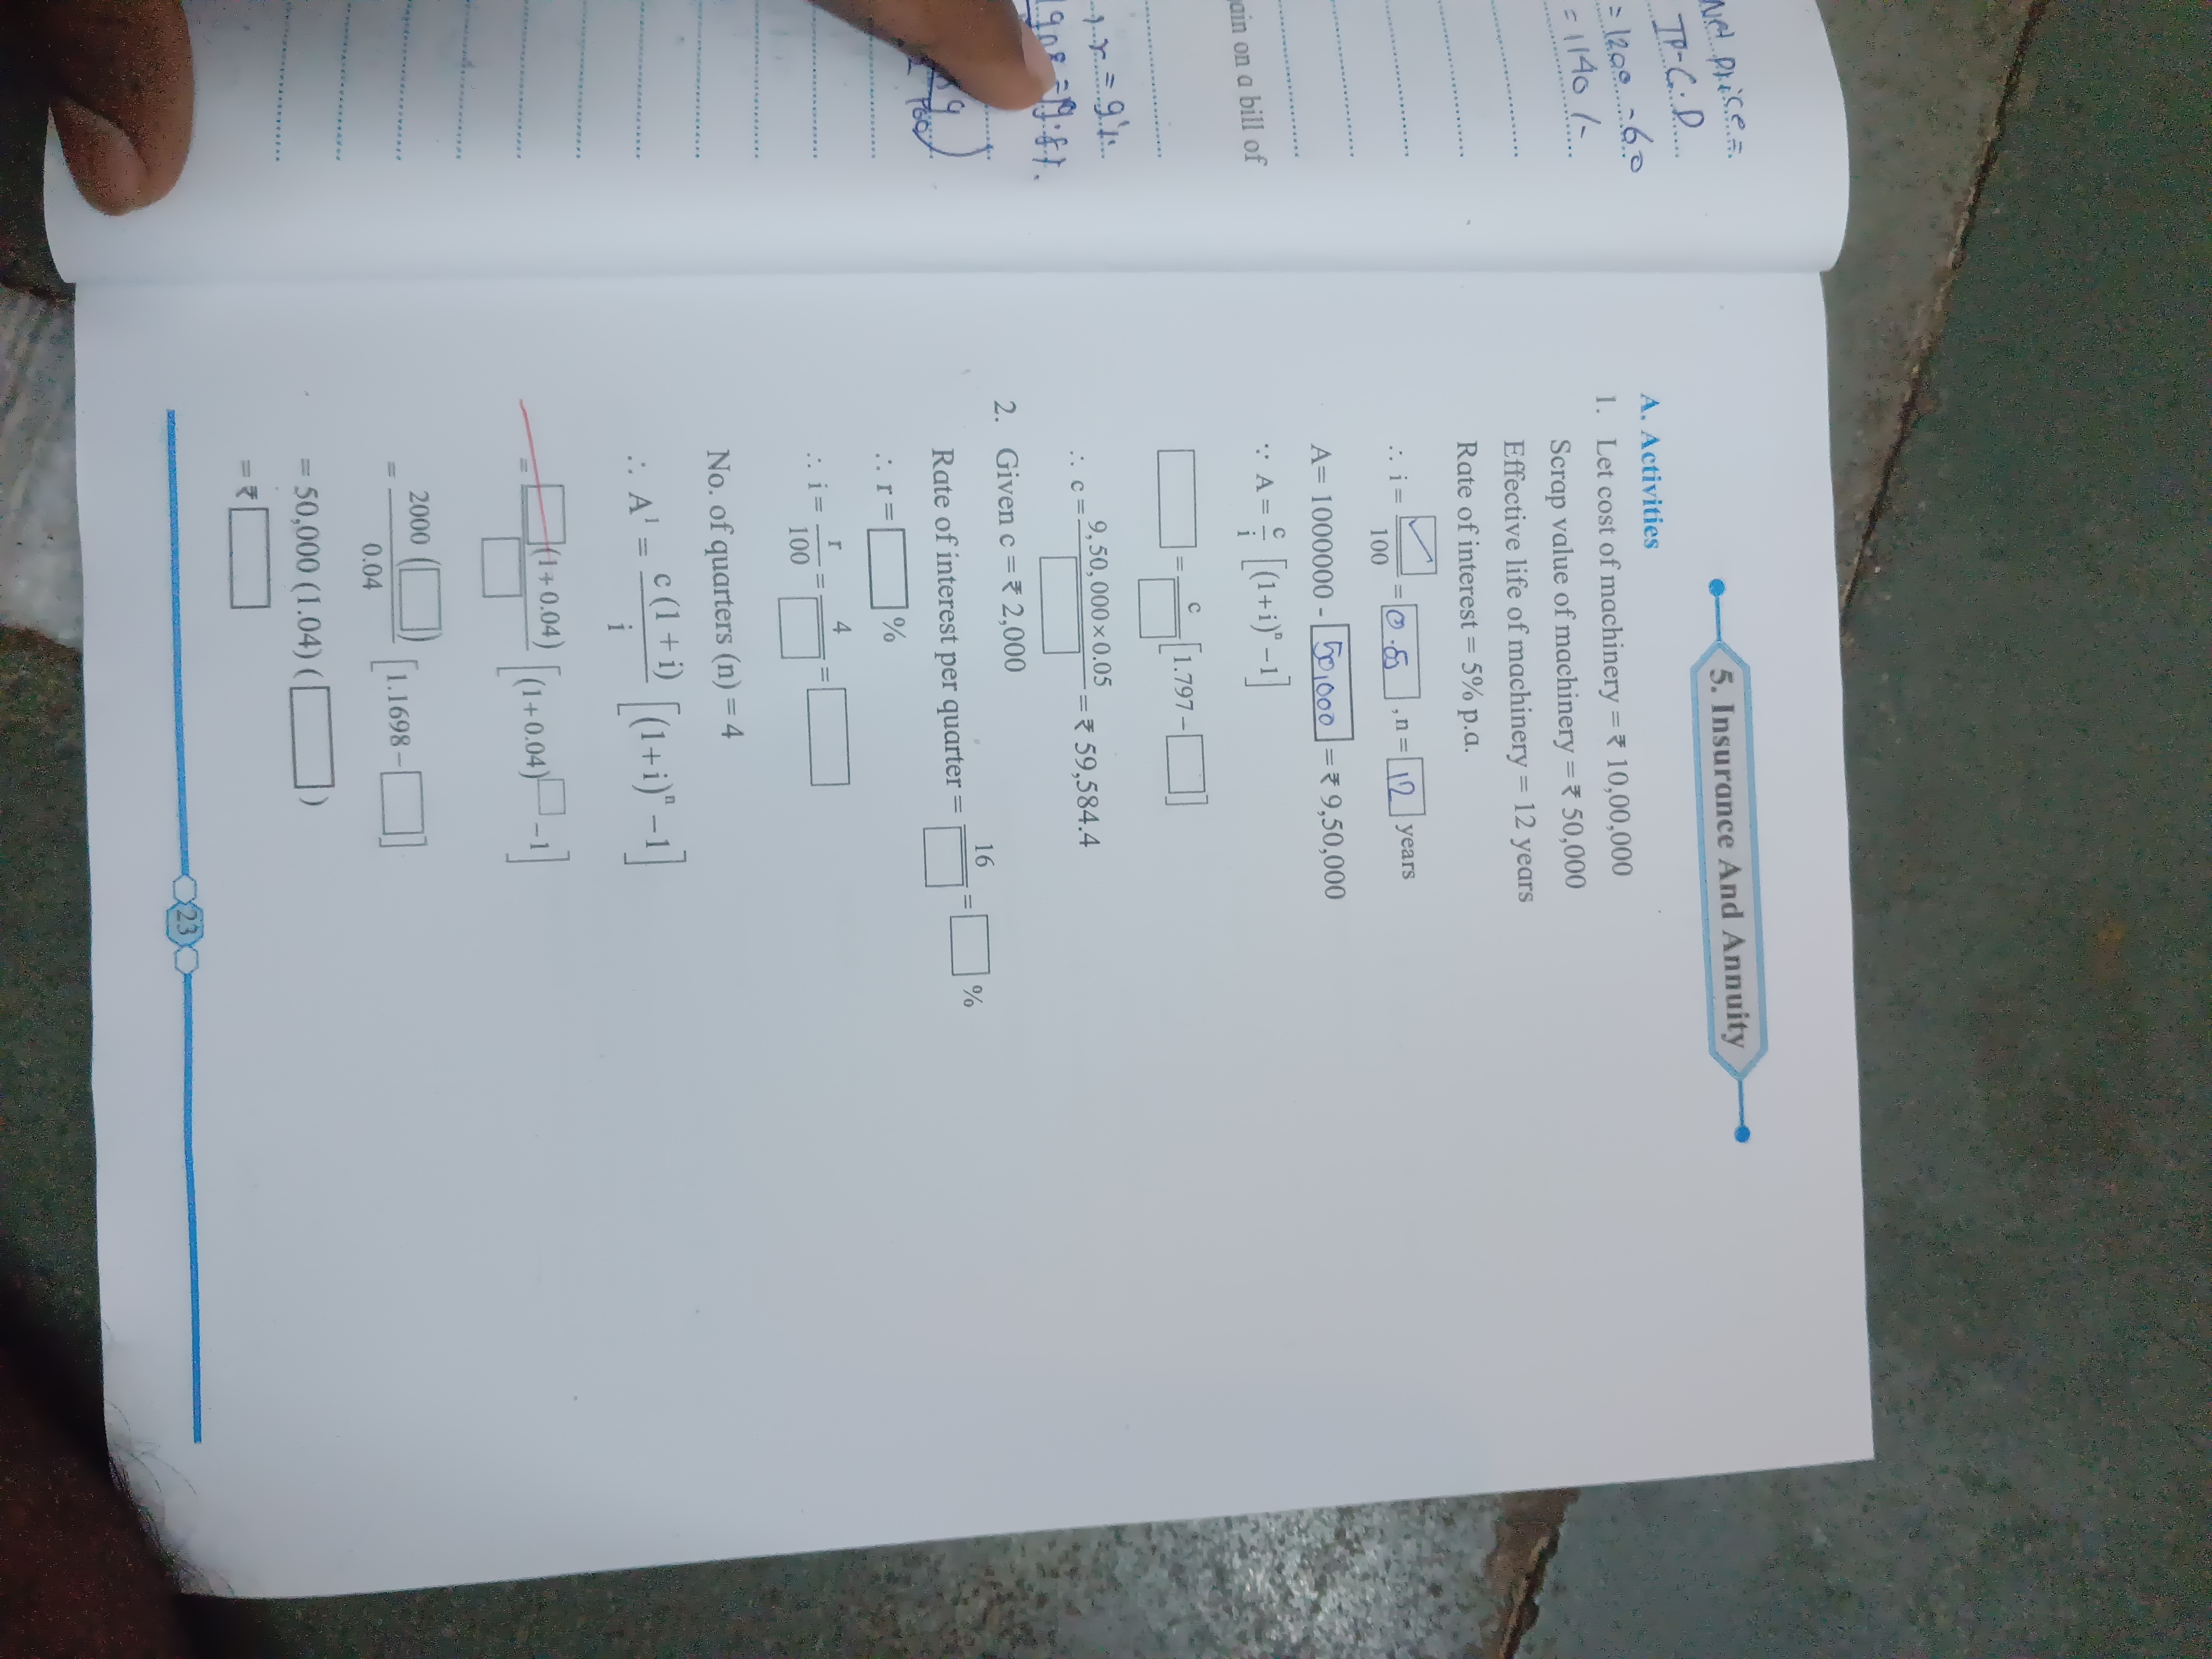 Net price =
IP-C.D
= 1200 - 60
= 1140 /-
ain on a bill of
r = 9%
5. Insurance And Annuity
A. Activities
1. Let cost of machinery = ₹ 10,00,000
Scrap value of machinery = ₹ 50,000
Effective life of machinery = 12 years
Rate of interest = 5% p.a.
∴ i = □/100 = 0.05, n = 12 years
A= 1000000 - 50,000 = ₹ 9,50,000
∵ A = c/i [(1+i)ⁿ −1]
□ = c/□ [1.797 − □]
∴ c = 9,50,000×0.05/□ = ₹ 59,584.4
2. Given c = ₹ 2,000
Rate of interest per quarter = 16/□ = □ %
∴ r = □ %
∴ i = r/100 = 4/□ = □
No. of quarters (n) = 4
∴ A¹ = c (1 + i)/i [(1 + i)ⁿ −1]
= □(1+0.04)/□ [(1+0.04)^□ −1]
= 2000 (□)/0.04 [1.1698 − □]
= 50,000 (1.04) (□)
= ₹ □
23